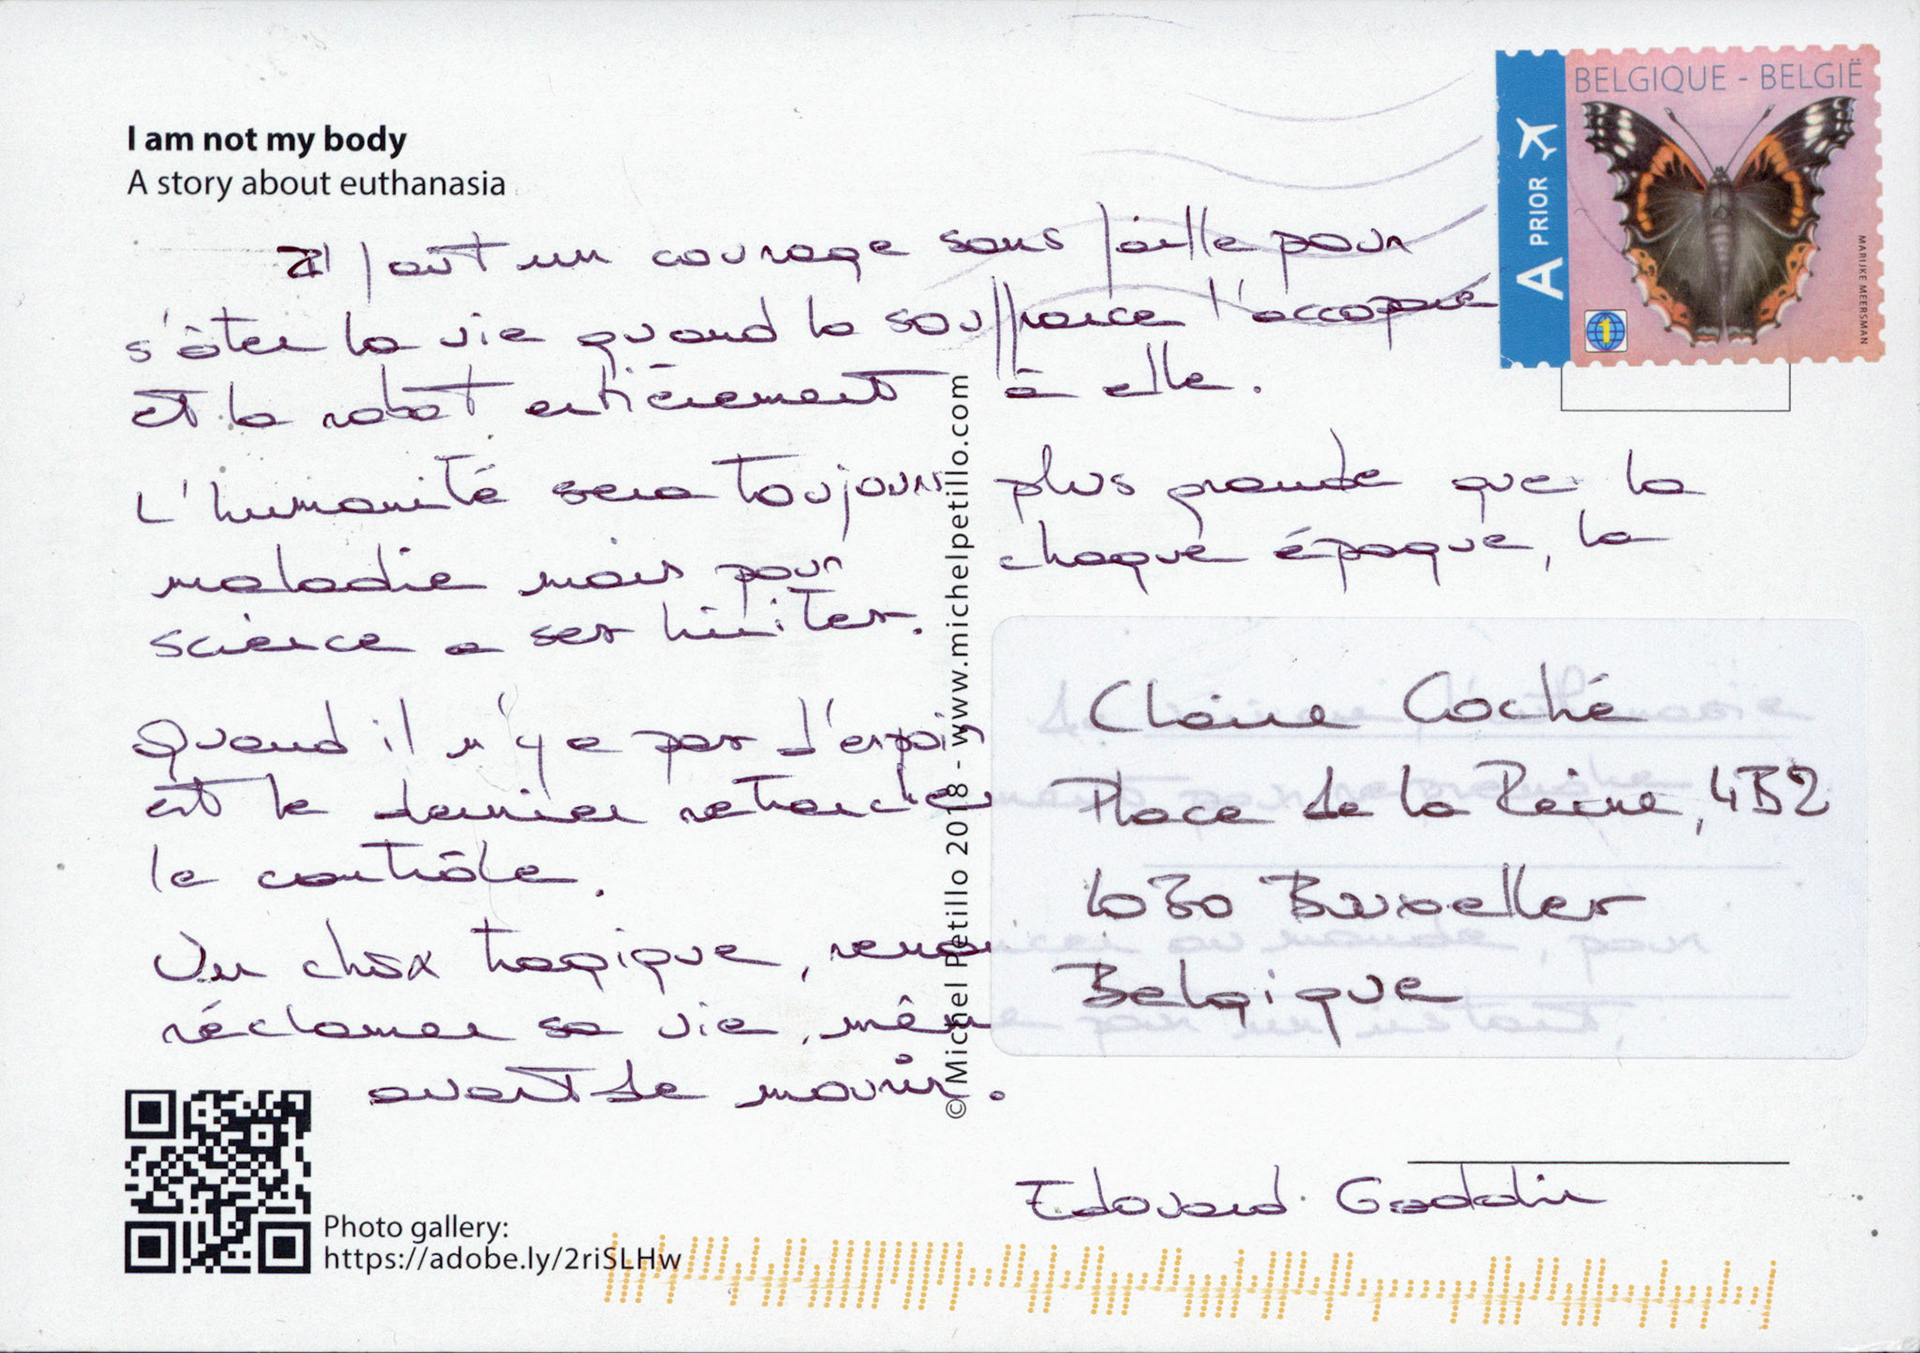 BELGIQUE - BELGIË
A PRIOR
MARIJKE MEERSMAN
1
I am not my body
A story about euthanasia
Il faut un courage sans faille pour
s'ôter la vie quand la souffrance l'accapare
et la rabat entièrement à elle.
L'humanité sera toujours plus grande que la
maladie mais pour chaque époque, la
science a ses limites.
Quand il n'y a pas d'espoir, l'euthanasie
est le dernier retranchement pour reprendre
le contrôle.
Un choix tragique, renoncer au monde, pour
réclamer sa vie, même pour un instant,
avant de mourir.
Edouard Gaddin
Claire Coché
Place de la Reine, 4B2
1030 Bruxelles
Belgique
© Michel Petillo 2018 - www.michelpetillo.com
Photo gallery:
https://adobe.ly/2riSLHw